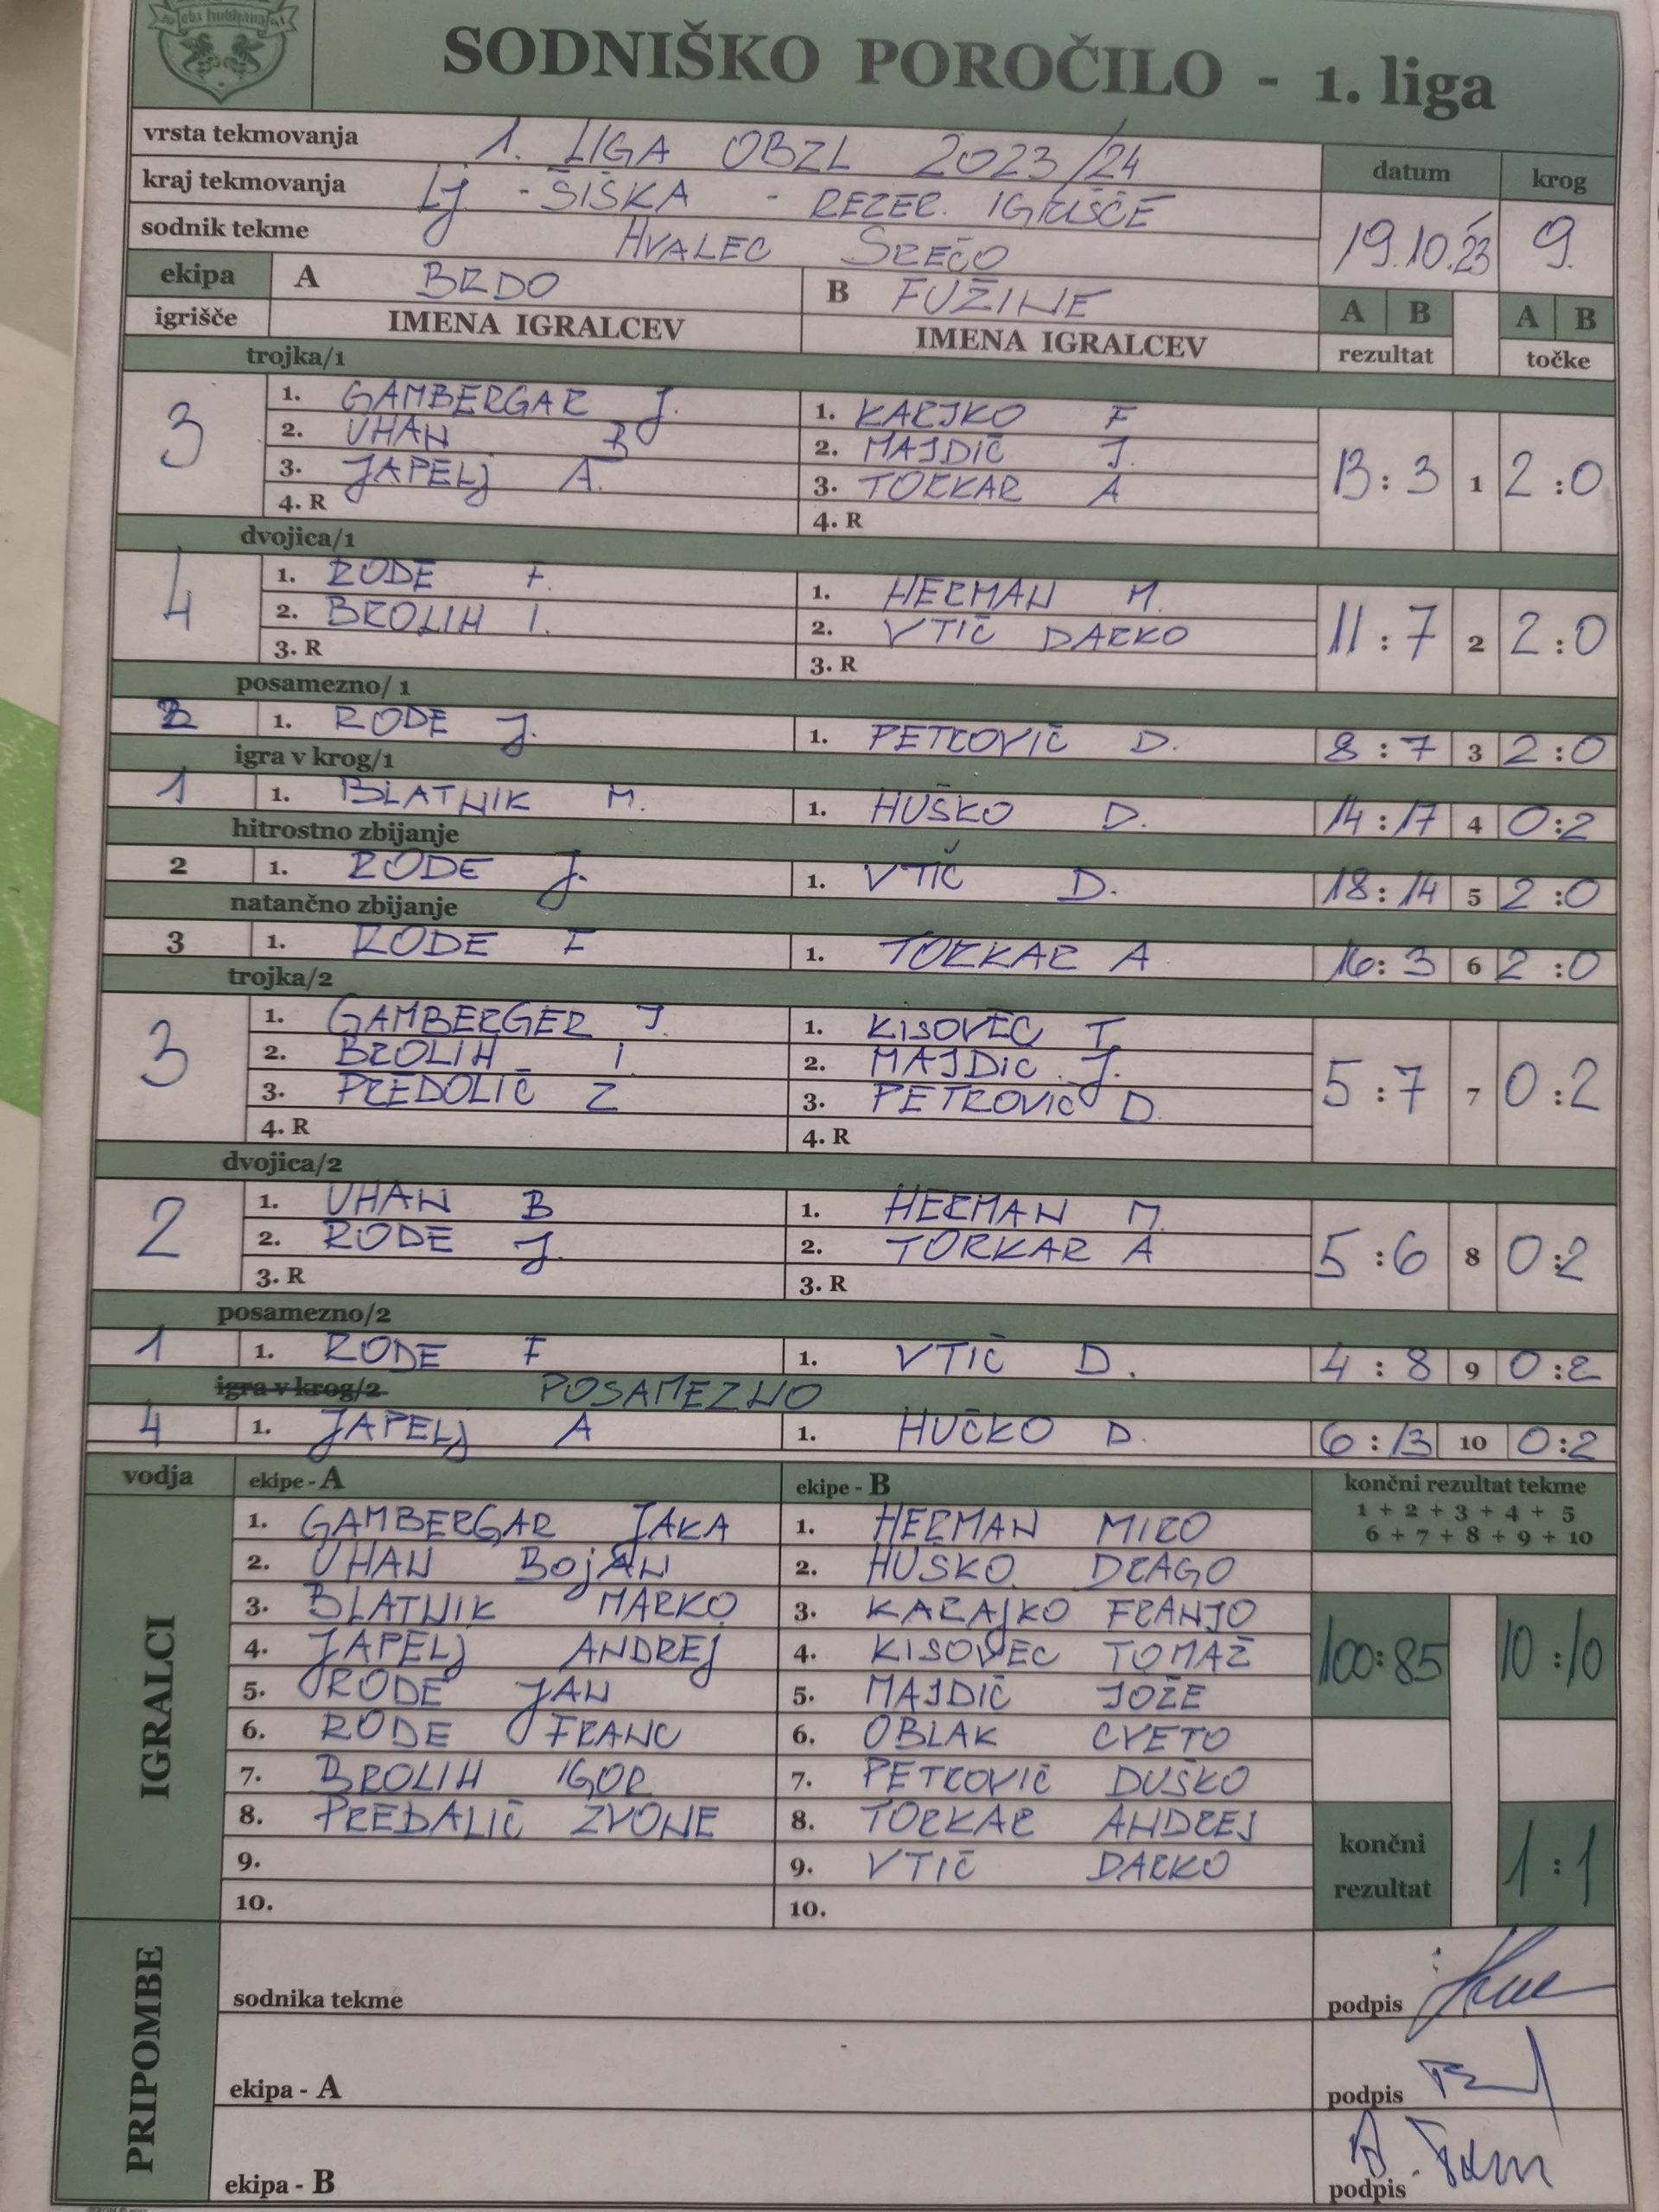 SODNIŠKO POROČILO - 1. liga
vrsta tekmovanja 1. LIGA OBZL 2023/24 datum krog
kraj tekmovanja Lj - ŠIŠKA - REZER. IGRIŠČE
sodnik tekme HVALEC SREČO 19.10.23 9.
ekipa A BRDO B FUŽINE A B A B
igrišče IMENA IGRALCEV IMENA IGRALCEV rezultat točke
trojka/1
3 13 : 3 1 2 : 0
1. GAMBERGAR J. 1. KARJKO F
2. UHAN B 2. MAJDIČ J.
3. JAPELJ A. 3. TORKAR A
4. R 4. R
dvojica/1
4 11 : 7 2 2 : 0
1. RODE F. 1. HERMAN M.
2. BROLIH I. 2. VTIČ DARKO
3. R 3. R
posamezno/ 1
2 1. RODE J. 1. PETROVIČ D. 8 : 7 3 2 : 0
igra v krog/1
1 1. BLATNIK M. 1. HUŠKO D. 14 : 17 4 0 : 2
hitrostno zbijanje
2 1. RODE J. 1. VTIČ D. 18 : 14 5 2 : 0
natančno zbijanje
3 1. RODE F 1. TORKAR A 16 : 3 6 2 : 0
trojka/2
3 5 : 7 7 0 : 2
1. GAMBERGER J. 1. KISOVEC T.
2. BROLIH I. 2. MAJDIC J.
3. PREDOLIČ Z 3. PETROVIČ D.
4. R 4. R
dvojica/2
2 5 : 6 8 0 : 2
1. UHAN B 1. HERMAN M.
2. RODE J. 2. TORKAR A
3. R 3. R
posamezno/2
1 1. RODE F 1. VTIČ D. 4 : 8 9 0 : 2
igra v krog/2 POSAMEZNO
4 1. JAPELJ A 1. HUČKO D. 6 : 13 10 0 : 2
vodja ekipe - A ekipe - B končni rezultat tekme
1 + 2 + 3 + 4 + 5
6 + 7 + 8 + 9 + 10
IGRALCI
1. GAMBERGAR JAKA 1. HERMAN MIRO
2. UHAN BojAN 2. HUŠKO DRAGO
3. BLATNIK MARKO 3. KARAJKO FRANJO
4. JAPELJ ANDREJ 4. KISOVEC TOMAŽ
100 : 85 10 : 10
5. RODE JAN 5. MAJDIČ JOŽE
6. RODE FRANC 6. OBLAK CVETO
7. BROLIH IGOR 7. PETROVIČ DUŠKO
8. PREDALIČ ZVONE 8. TORKAR ANDREJ
9. 9. VTIČ DARKO
10. 10.
končni
rezultat 1 : 1
PRIPOMBE
sodnika tekme podpis
ekipa - A podpis
ekipa - B podpis